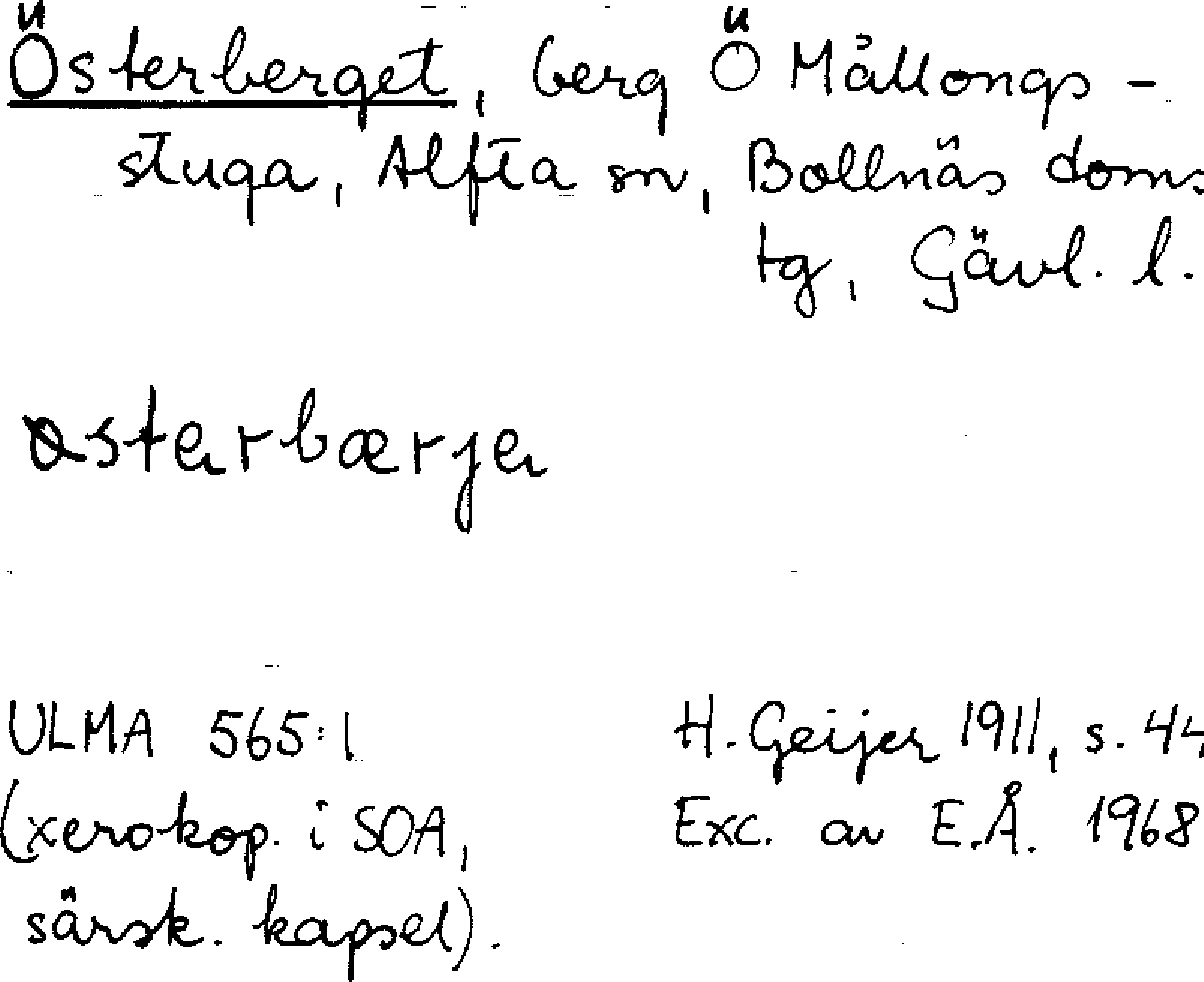 Österberget, berg Ö Mållongs-
stuga, Alfta sn, Bollnäs doms
tg, Gävl. l.
østerbærje
ULMA 565:1 H. Geijer 1911, s. 44
(xerokop. i SOA, Exc. av E.Å. 1968
särsk. kapsel).